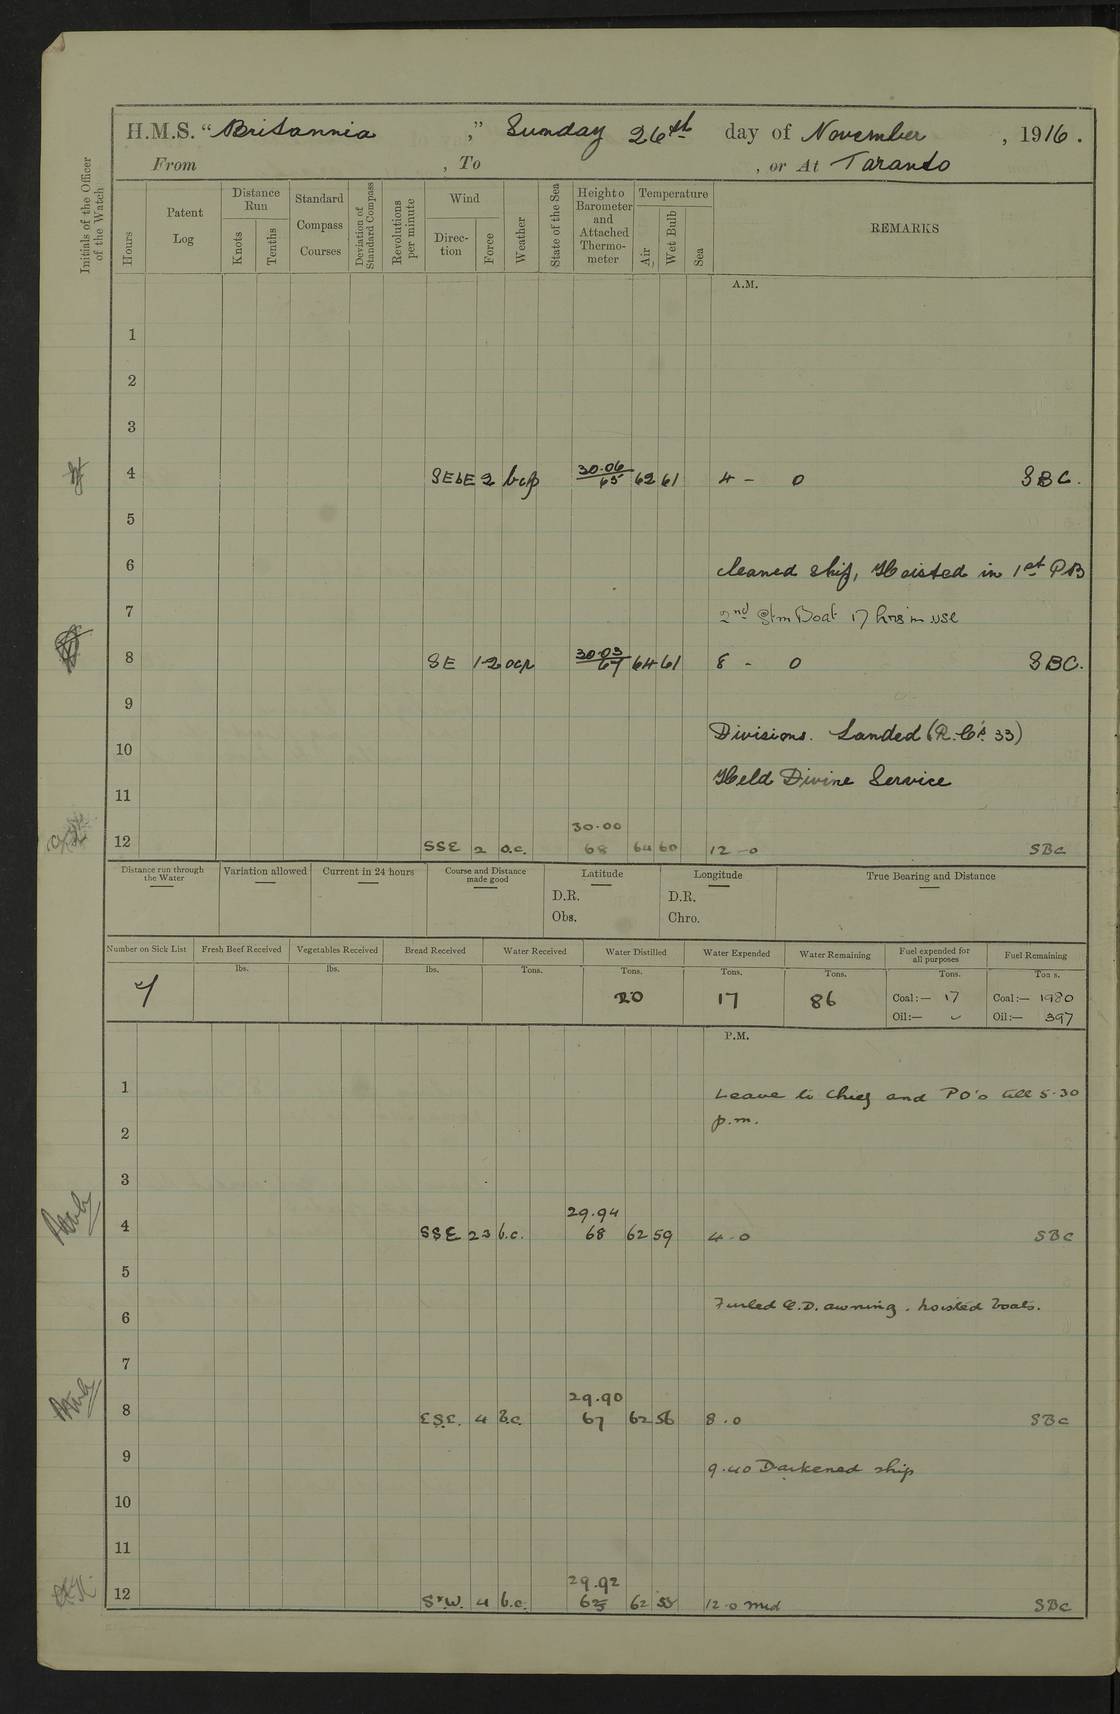 H.M.S. "Britannia ," Sunday 26th day of November , 1916.
From , To , or At Taranto
Initials of the Officer of the Watch
Hours
Patent Log
Distance Run
Knots
Tenths
Standard Compass Courses
Deviation of Standard Compass
Revolutions per minute
Wind
Direction
Force
Weather
State of the Sea
Height o Barometer and Attached Thermometer
Temperature
Air
Wet Bulb
Sea
REMARKS
A.M.
1
2
3
4 SEbE 2 bcp 30.06 65 62 61 4 - 0 SBC.
5
6 Cleaned ship, Hoisted in 1st PB
7 2nd Stm Boat 17 hrs in use
8 SE 1-2 ocp 30.03 67 64 61 8 - 0 SBC.
9
10 Divisions. Landed (R.C's 33)
11 Held Divine Service
12 SSE 2 o.c. 30.00 68 64 60 12 - 0 SBC
Distance run through the Water
Variation allowed
Current in 24 hours
Course and Distance made good
Latitude
D.R.
Obs.
Longitude
D.R.
Chro.
True Bearing and Distance
Number on Sick List
Fresh Beef Received lbs.
Vegetables Received lbs.
Bread Received lbs.
Water Received Tons.
Water Distilled Tons. 20
Water Expended Tons. 17
Water Remaining Tons. 86
Fuel expended for all purposes Tons.
Coal:— 17
Oil:— -
Fuel Remaining Tons.
Coal:— 1980
Oil:— 397
P.M.
1 Leave to Chief and PO's till 5.30
2 p.m.
3
4 SSE 2 3 b.c. 29.94 68 62 59 4.0 SBC
5
6 Furled Q.D. awning. hoisted boats.
7
8 ESE. 4 b.c. 29.90 67 62 56 8.0 SBC
9 9.40 Darkened ship
10
11
12 SxW. 4 b.c. 29.92 62 53 12.0 mid SBC